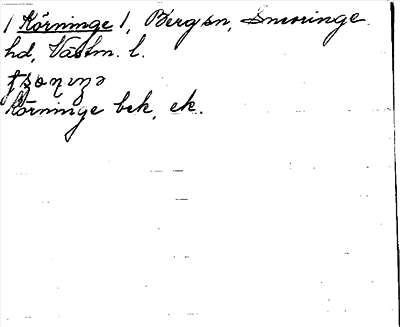 / Körninge /, Bergsn, Snevringe
hd, Västm. l.
Körninge bek, ek.